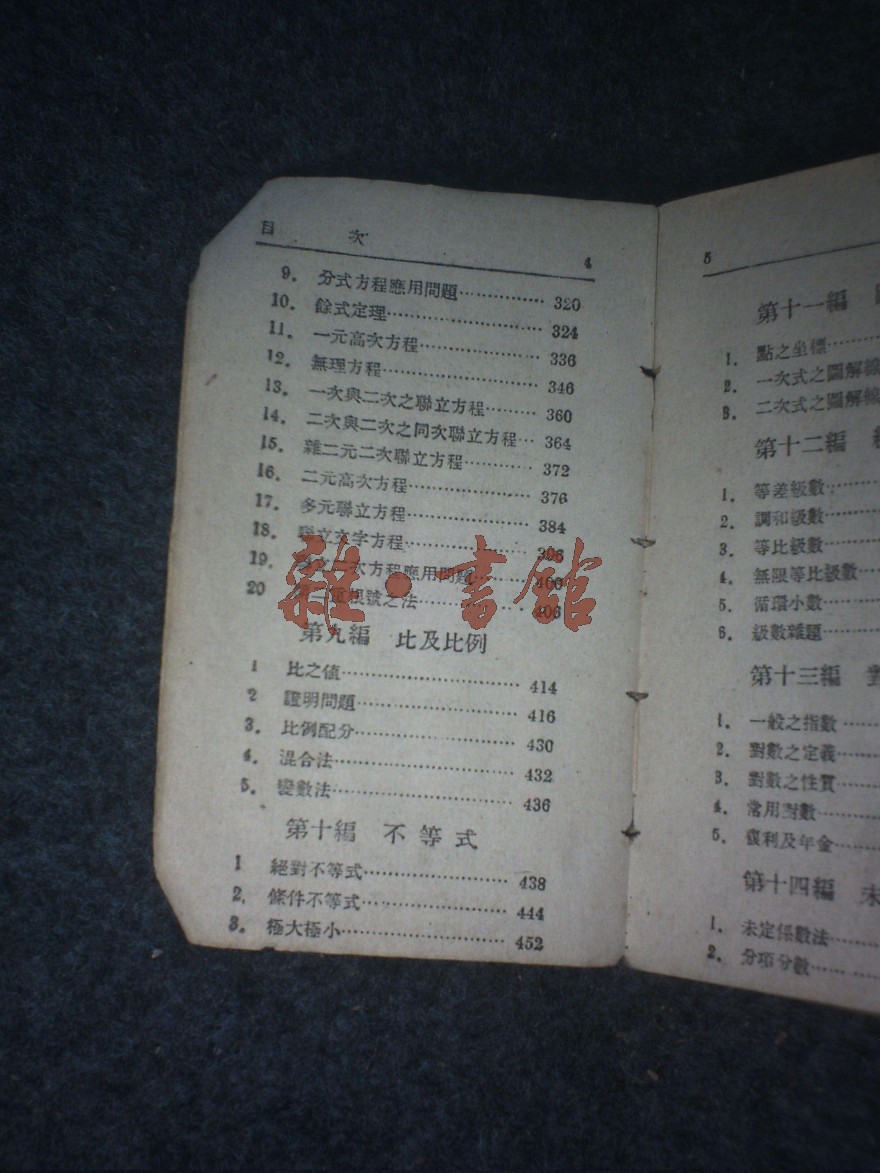 目 次 4
9. 分式方程應用問題……………320
10. 餘式定理……………324
11. 一元高次方程……………336
12. 無理方程……………346
13. 一次與二次之聯立方程………360
14. 二次與二次之同次聯立方程…364
15. 雜二元二次聯立方程…………372
16. 二元高次方程……………376
17. 多元聯立方程……………384
18. 聯立文字方程……………396
19. 一次方程應用問題……400
20 根號之法……………406
雜·書館
第九編 比及比例
1 比之值……………414
2 證明問題……………416
3. 比例配分……………430
4. 混合法……………432
5. 變數法……………436
第十編 不等式
1 絕對不等式……………438
2. 條件不等式……………444
3. 極大極小……………452
5
第十一編
1. 點之坐標……
2. 一次式之圖解線
3. 二次式之圖解線
第十二編
1. 等差級數……
2. 調和級數……
3. 等比級數……
4. 無限等比級數…
5. 循環小數……
6. 級數雜題……
第十三編 對
1. 一般之指數……
2. 對數之定義……
3. 對數之性質……
4. 常用對數……
5. 復利及年金……
第十四編 未
1. 未定係數法……
2. 分項分數……